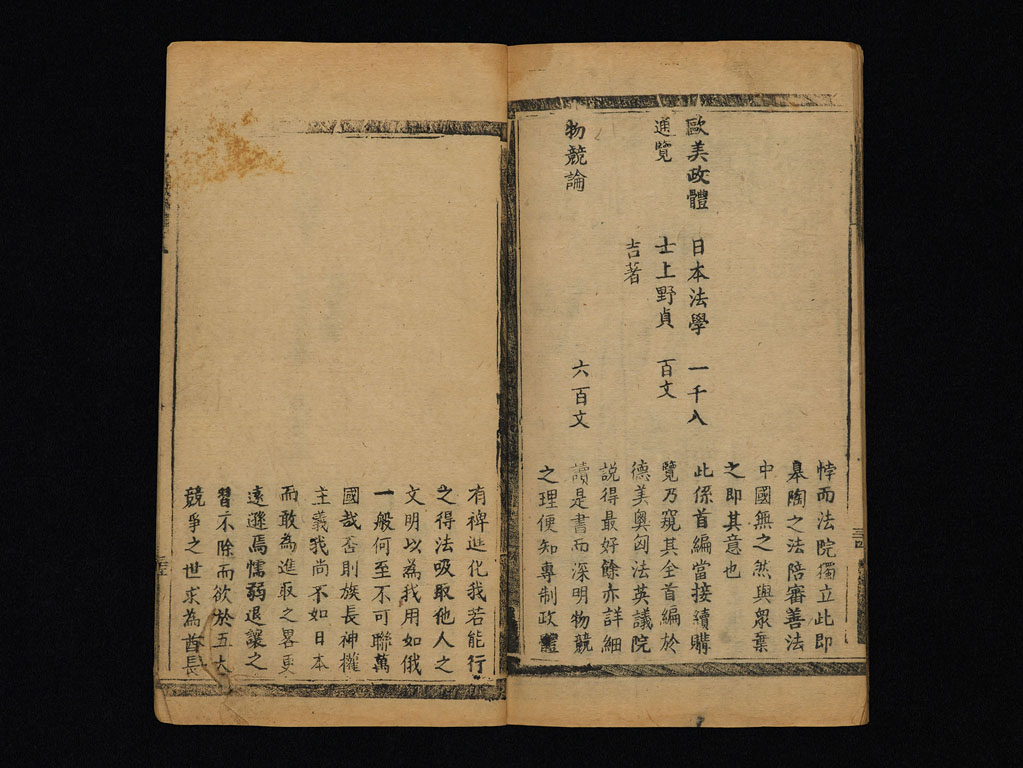 悖而法院獨立此即
皋陶之法陪審善法
中國無之然與眾棄
之即其意也
歐美政體
通覽
日本法學
士上野貞
吉著
一千八
百文
此係首編當接續購
覽乃窺其全首編於
德美奧匈法英議院
説得最好餘亦詳細
物競論
六百文
讀是書而深明物競
之理便知專制政體
有裨進化我若能行
之得法吸取他人之
文明以為我用如俄
一般何至不可聯萬
國哉否則族長神權
主義我尚不如日本
而敢為進取之畧更
遠遜焉懦弱退讓之
習不除而欲於五大
競爭之世求為酋長